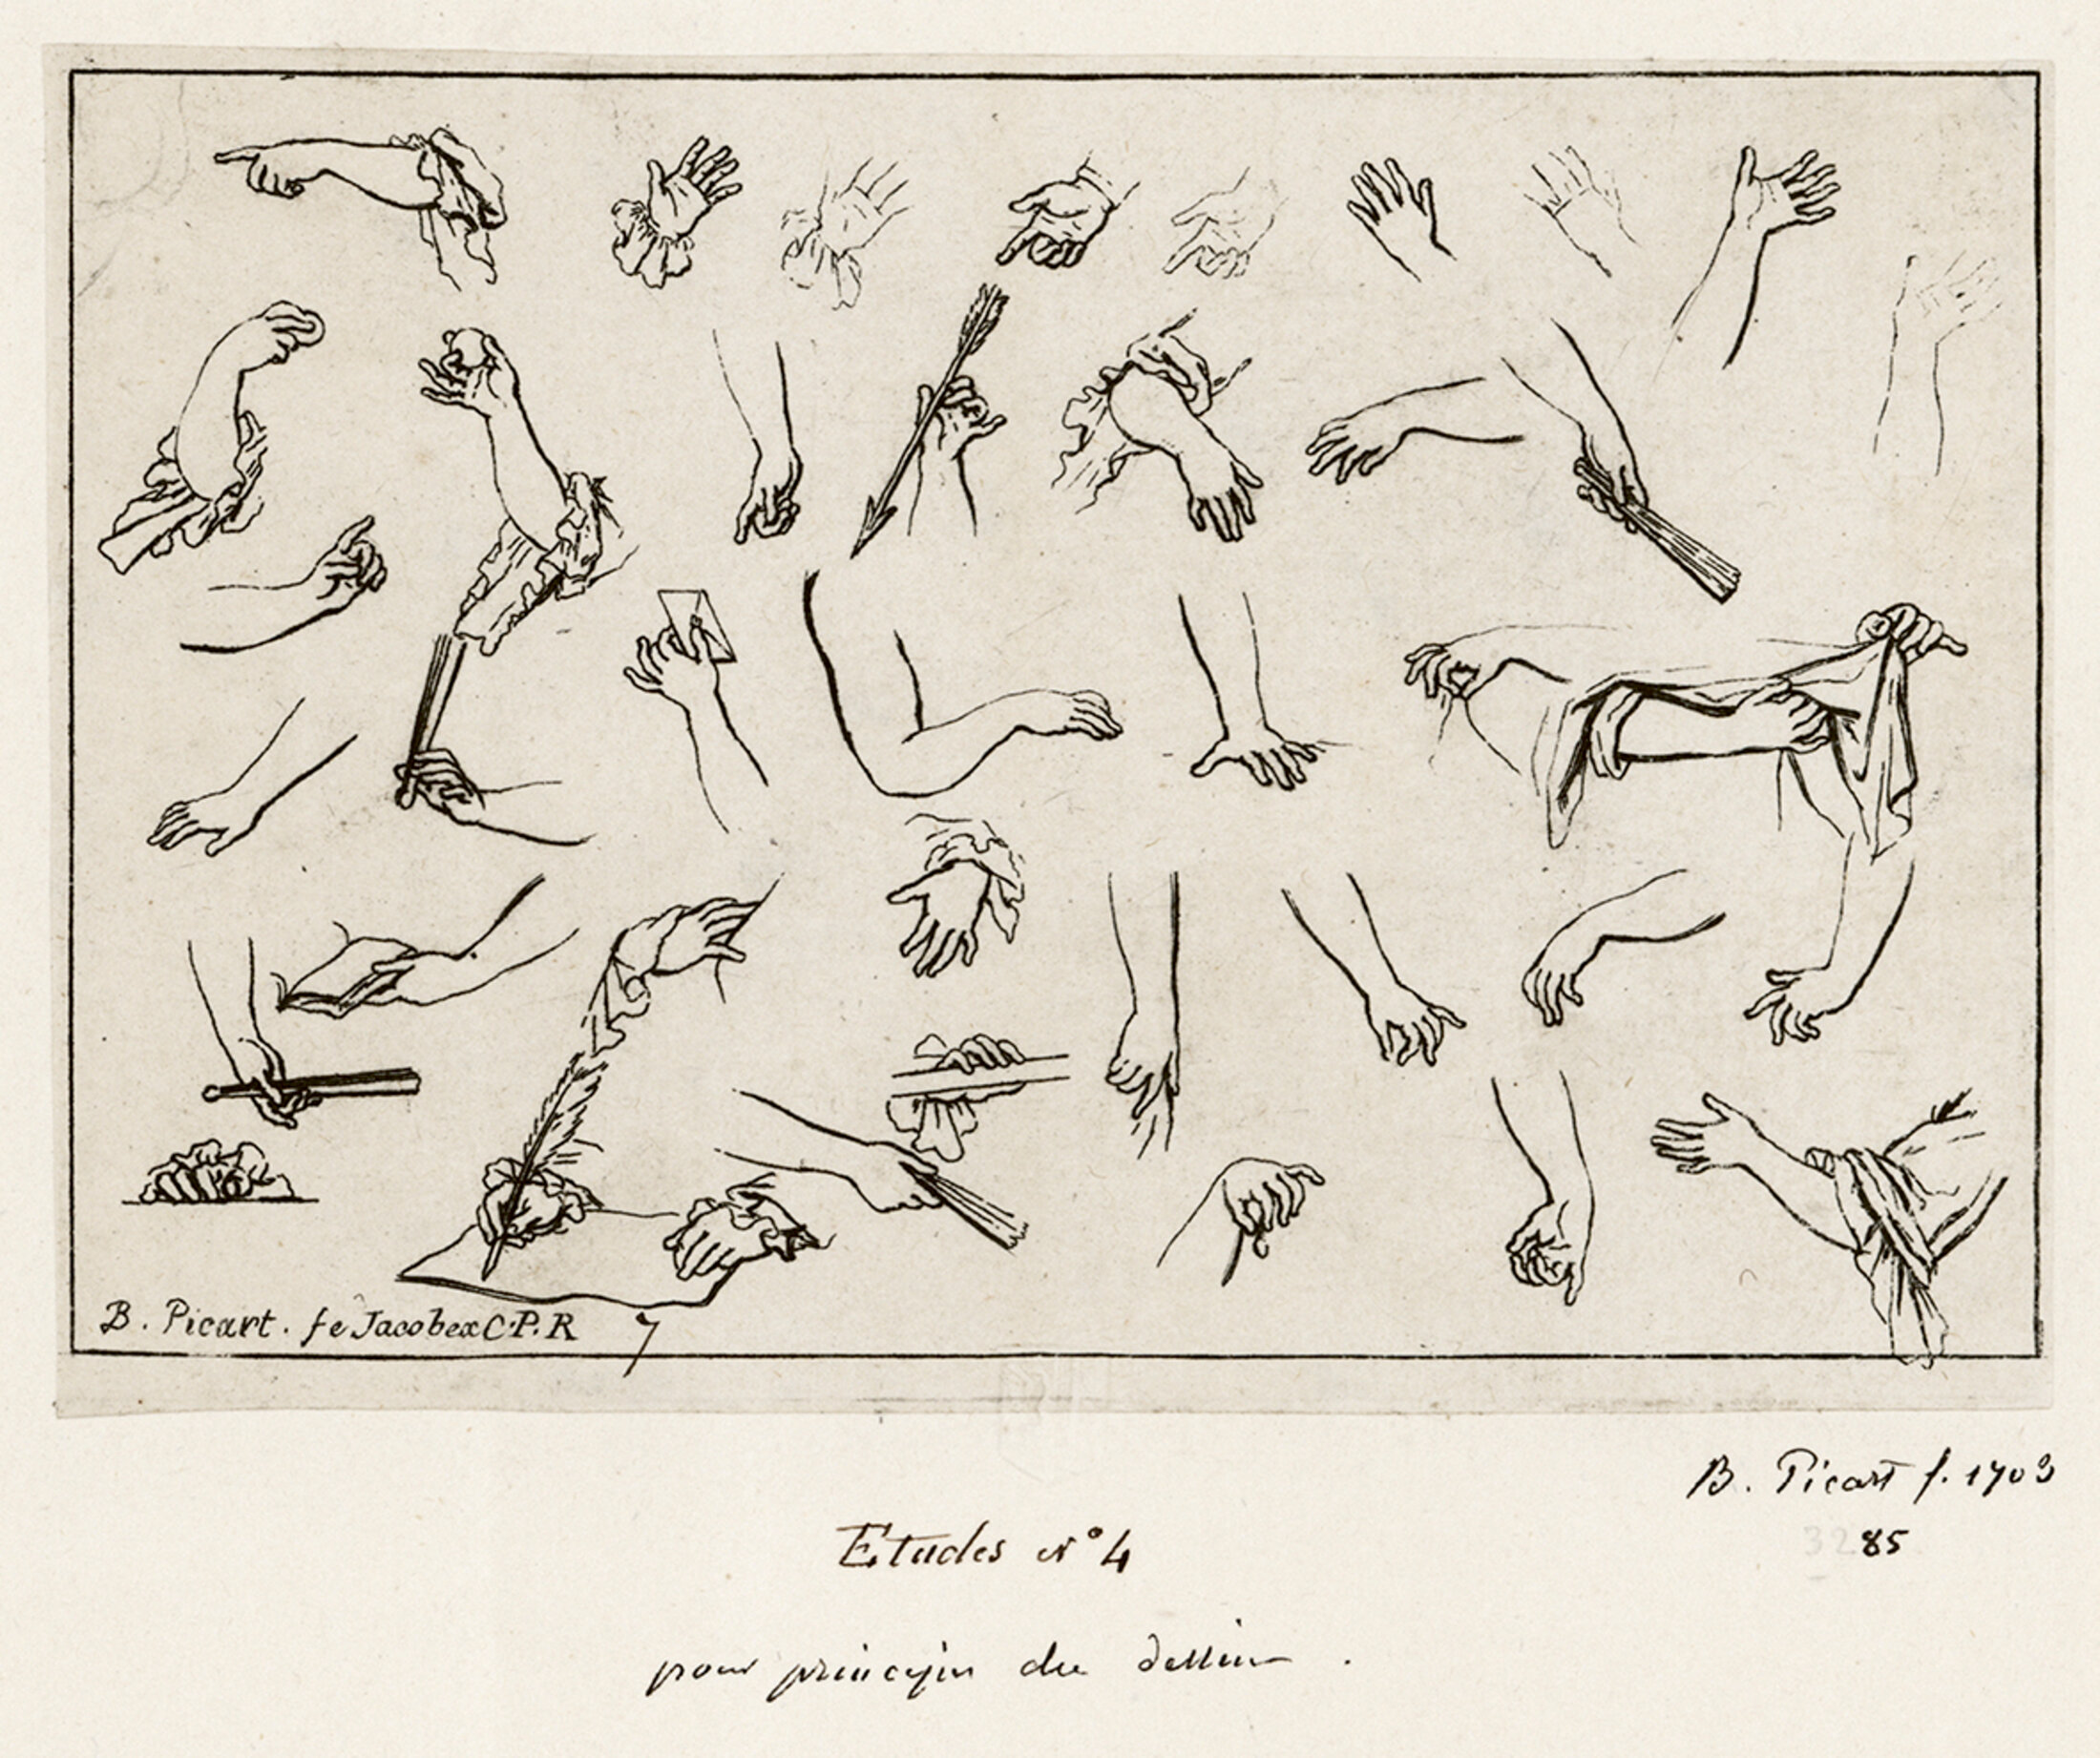 B. Picart. fe Jacobex C.P.R 7
B. Picart f. 1703
3285
Etudes N° 4
pour principes du dessin .